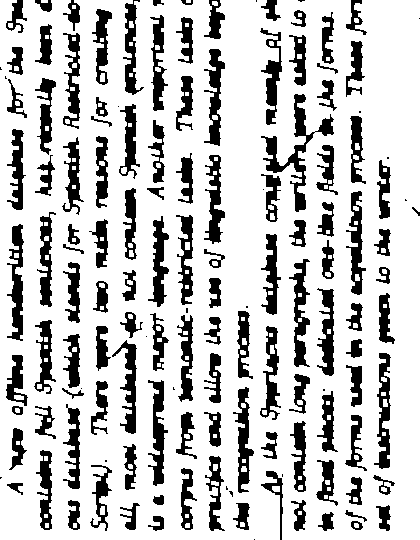 A new offline handwritten database for the Spa
contains full Spanish sentences, has recently been d
ous database (which stands for Spanish Restricted-do
Script). There were two main reasons for creating
all, most databases do not contain Spanish sentences,
is a widespread major language. Another important r
corpus from semantic-restricted tasks. These tasks a
practice and allow the use of linguistic knowledge beyo
the recognition process.
As the Spartacus database consisted mainly of sh
not contain long paragraphs, the writers were asked to c
in fixed places: dedicated one-line fields in the forms.
of the forms used in the acquisition process. These for
set of instructions given to the writer.